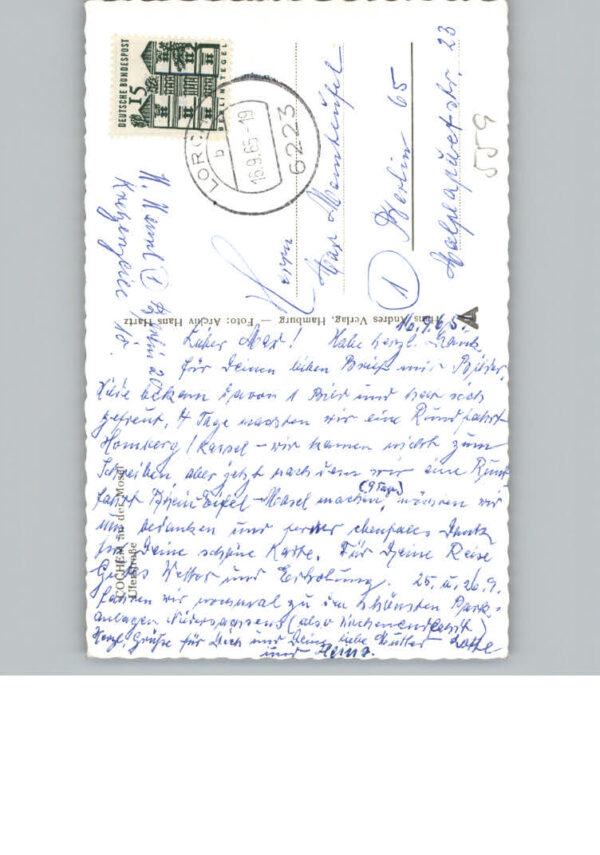 DEUTSCHE BUNDESPOST
15
BERLIN TEGEL
LORCH
b
16.9.65-19
6223
Herrn
Max
1 Berlin 65
23
559
H.
Berlin 20
18.
Hans Andres Verlag, Hamburg — Foto: Archiv Hans Hartz
A
COCHEM an der Mosel
Uferstraße
16.9.65.
Lieber Max! Habe herzl. Dank
für Deinen lieben Brief mit Bilder.
1 Bild und
gefreut. 4 Tage machten wir eine Rundfahrt
Homberg / Kassel – wir kamen nicht zum
Schreiben, aber jetzt nach dem wir eine Rund-
fahrt Rhein Eifel Mosel machen, (9 Tage) möchten wir
uns bedanken und ferner ebenfalls Dank
für Deine schöne Karte. Für Deine Reise
Gutes Wetter und Erholung. 25. u. 26.9.
fahren wir nochmal zu den schönsten Park-
anlagen Niedersachsens (also Wochenendfahrt)
Herzl. Grüße für Dich und Deine liebe Mutter Lotte
und Heinz.